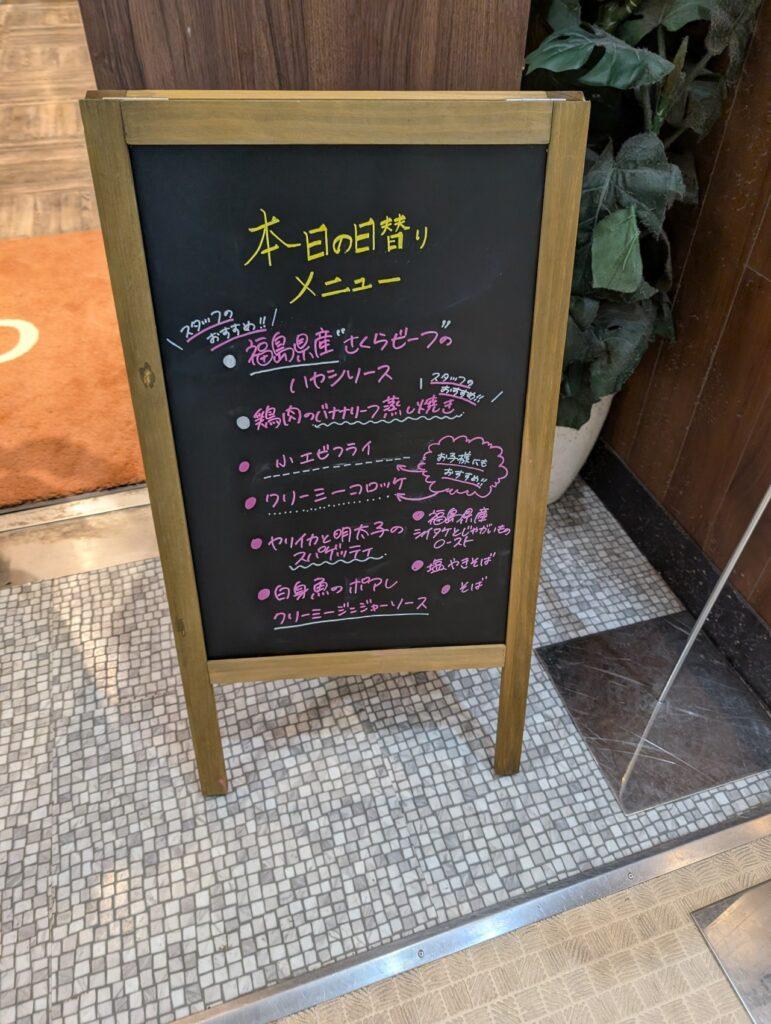 本日の日替り
メニュー
スタッフの
おすすめ!!
福島県産"さくらビーフ"の
ハヤシソース
スタッフの
おすすめ!!
鶏肉のバナナリーフ蒸し焼き
小エビフライ
クリーミーコロッケ
お子様にも
おすすめ!!
ヤリイカと明太子の
スパゲッティ
白身魚のポアレ
クリーミージンジャーソース
福島県産
シイタケとじゃがいもの
ロースト
塩やきそば
そば